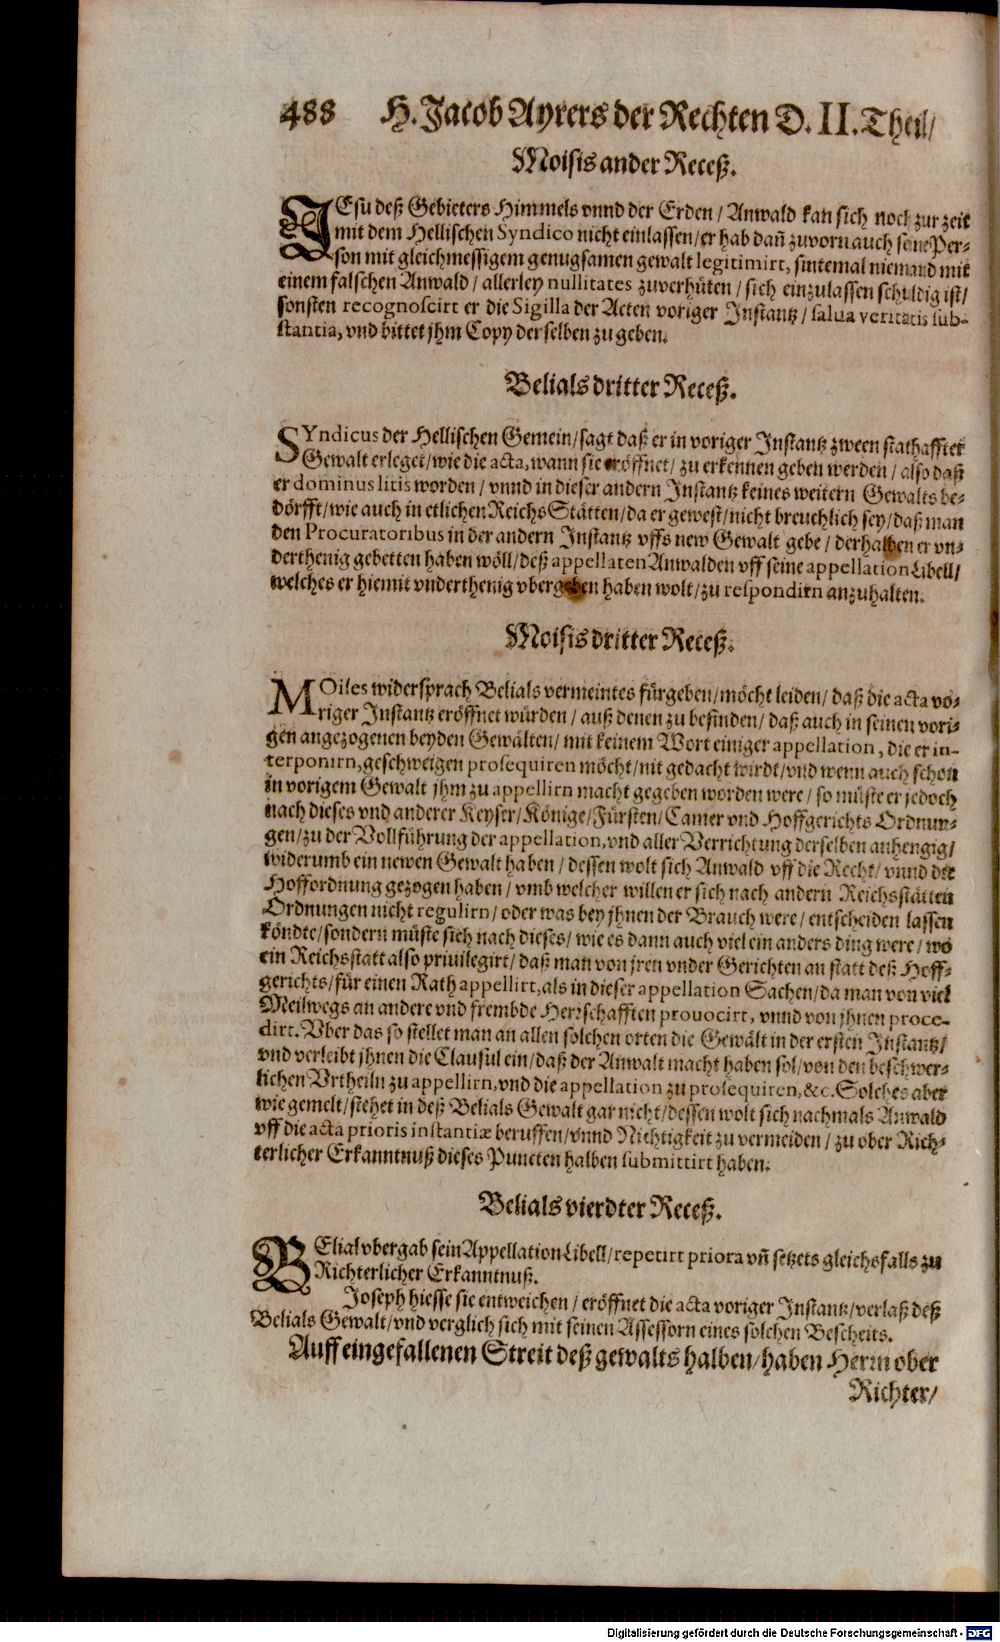 488 H. Jacob Ayrers der Rechten D. II. Theil/
Moisis ander Receß.
JEsu deß Gebieters Himmels vnnd der Erden / Anwald kan sich noch zur zeit
mit dem Hellischen Syndico nicht einlassen/er hab dañ zuvorn auch seine Per-
son mit gleichmessigem genugsamen gewalt legitimirt, sintemal niemand mit
einem falschen Anwald / allerley nullitates zuverhüten / sich einzulassen schuldig ist/
sonsten recognoscirt er die Sigilla der Acten voriger Instantz / salua veritatis sub-
stantia, vnd bittet jhm Copy derselben zu geben.
Belials dritter Receß.
SYndicus der Hellischen Gemein/sagt daß er in voriger Instantz zween stathaffter
Gewalt erleget/wie die acta, wann sie eröffnet/ zu erkennen geben werden / also daß
er dominus litis worden / vnnd in dieser andern Instantz keines weitern Gewalts be-
dörfft/wie auch in etlichen Reichs Stätten/da er gewest/nicht breuchlich sey/daß man
den Procuratoribus in der andern Instantz vffs new Gewalt gebe / derhalben er vn-
derthenig gebetten haben wöll/deß appellaten Anwalden vff seine appellation Libell/
welches er hiemit vnderthenig vbergeben haben wolt/zu respondirn anzuhalten.
Moisis dritter Receß.
MOises widersprach Belials vermeintes fürgeben/möcht leiden/ daß die acta vo-
riger Instantz eröffnet würden / auß denen zu befinden/ daß auch in seinen vori-
gen angezogenen beyden Gewälten/ mit keinem Wort einiger appellation, die er in-
terponirn, geschweigen prosequiren möcht/nit gedacht wirdt/vnd wenn auch schon
in vorigem Gewalt jhm zu appellirn macht gegeben worden were/ so müste er jedoch
nach dieses vnd anderer Keyser/Könige/Fürsten/Camer vnd Hoffgerichts Ordnun-
gen/zu der Vollführung der appellation, vnd aller Verrichtung derselben anhengig/
widerumb ein newen Gewalt haben / dessen wolt sich Anwald vff die Recht/ vnnd die
Hoffordnung gezogen haben / vmb welcher willen er sich nach andern Reichsstätten
Ordnungen nicht regulirn / oder was bey jhnen der Brauch were / entscheiden lassen
köndte/sondern müste sich nach dieses/ wie es dann auch viel ein anders ding were/ wo
ein Reichsstatt also priuilegirt/ daß man von jren vnder Gerichten an statt deß Hoff-
gerichts/für einen Rath appellirt, als in dieser appellation Sachen/da man von viel
Meilwegs an andere vnd frembde Herrschafften prouocirt, vnnd von jhnen proce-
dirt. Vber das so stellet man an allen solchen orten die Gewält in der ersten Instantz/
vnd verleibt jhnen die Clausul ein/daß der Anwalt macht haben sol/von den beschwer-
lichen Vrtheiln zu appellirn, vnd die appellation zu prosequiren, &c. Solches aber
wie gemelt/stehet in deß Belials Gewalt gar nicht/dessen wolt sich nachmals Anwald
vff die acta prioris instantiæ beruffen/vnnd Nichtigkeit zu vermeiden / zu ober Rich-
terlicher Erkanntnuß dieses Puncten halben submittirt haben.
Belials vierdter Receß.
BElial vbergab sein Appellation Libell/repetirt priora vñ setzets gleichsfalls zu
Richterlicher Erkanntnuß.
Joseph hiesse sie entweichen / eröffnet die acta voriger Instantz/verlaß deß
Belials Gewalt/vnd verglich sich mit seinen Assessorn eines solchen Bescheits.
Auff eingefallenen Streit deß gewalts halben/haben Herrn ober
Richter/
Digitalisierung gefördert durch die Deutsche Forschungsgemeinschaft - DFG